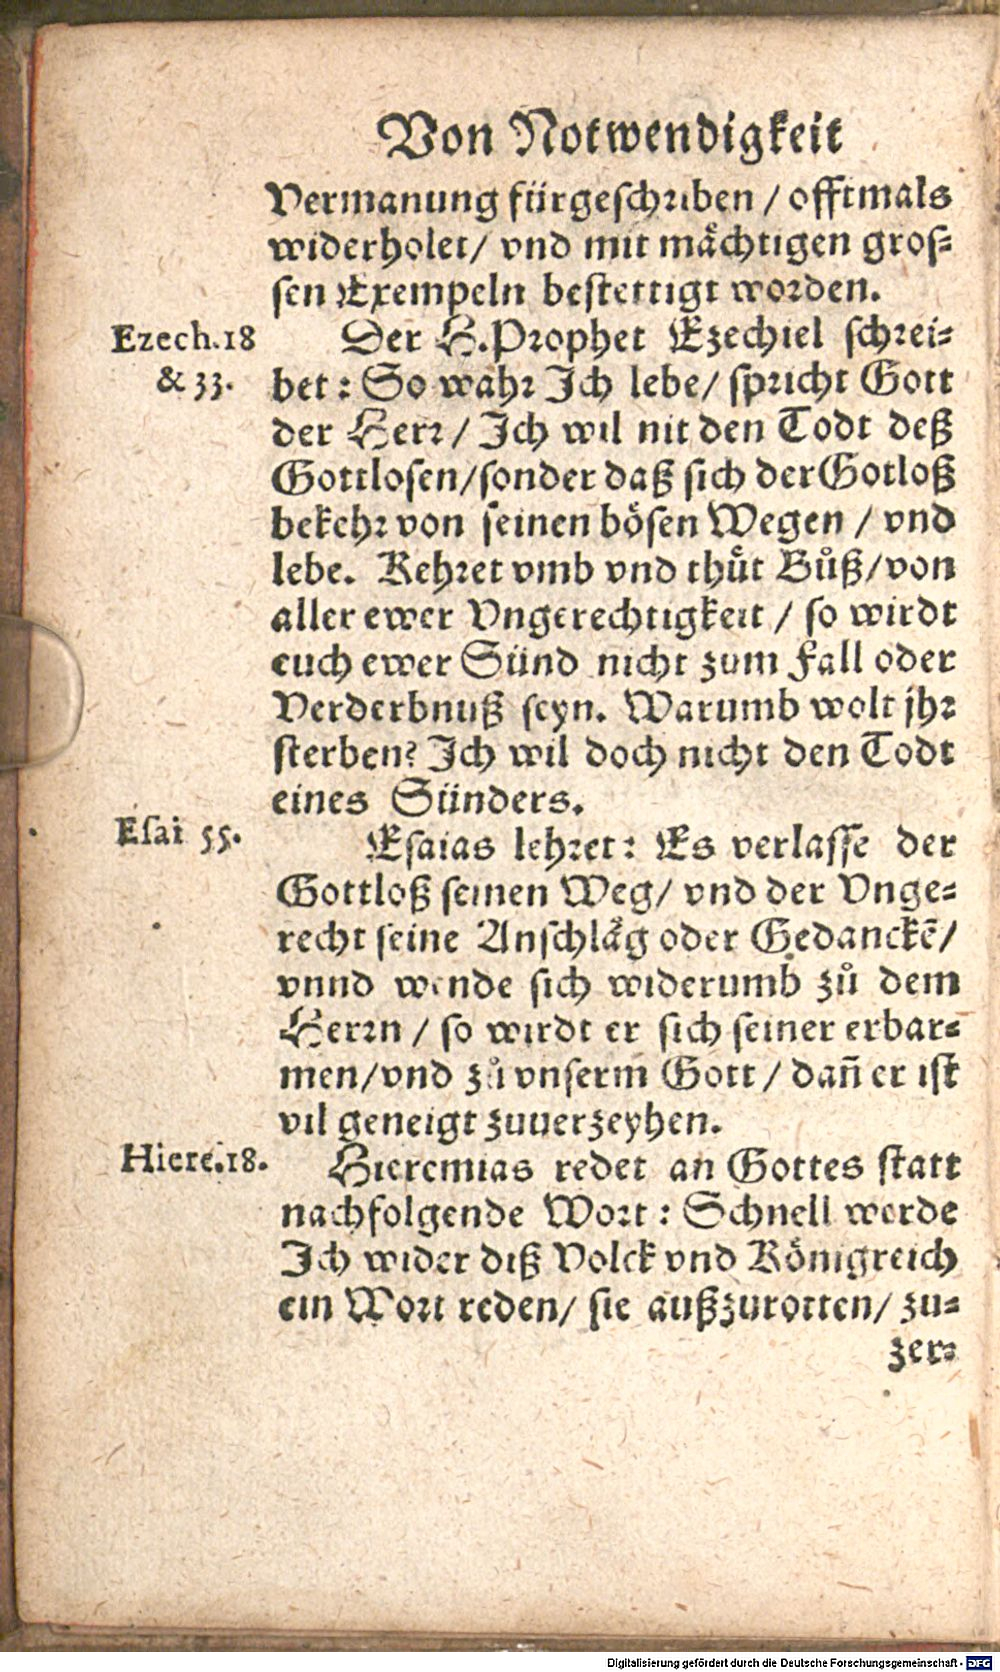 Von Notwendigkeit
Vermanung fürgeschriben / offtmals
widerholet / vnd mit mächtigen gros-
sen Exempeln bestettigt worden.
Ezech.18
& 33.
Der H. Prophet Ezechiel schrei-
bet: So wahr Ich lebe / spricht Gott
der Herr / Ich wil nit den Todt deß
Gottlosen / sonder daß sich der Gotloß
bekehr von seinen bösen Wegen / vnd
lebe. Kehret vmb vnd thuͤt Bůß / von
aller ewer Vngerechtigkeit / so wirdt
euch ewer Sünd nicht zum Fall oder
Verderbnuß seyn. Warumb wolt jhr
sterben? Ich wil doch nicht den Todt
eines Sünders.
Esai 55.
Esaias lehret: Es verlasse der
Gottloß seinen Weg / vnd der Vnge-
recht seine Anschläg oder Gedanckē /
vnnd wende sich widerumb zů dem
Herrn / so wirdt er sich seiner erbar-
men / vnd zů vnserm Gott / dañ er ist
vil geneigt zuuerzeyhen.
Hiere.18.
Hieremias redet an Gottes statt
nachfolgende Wort: Schnell werde
Ich wider diß Volck vnd Königreich
ein Wort reden / sie außzurotten / zu-
zer-
Digitalisierung gefördert durch die Deutsche Forschungsgemeinschaft - DFG